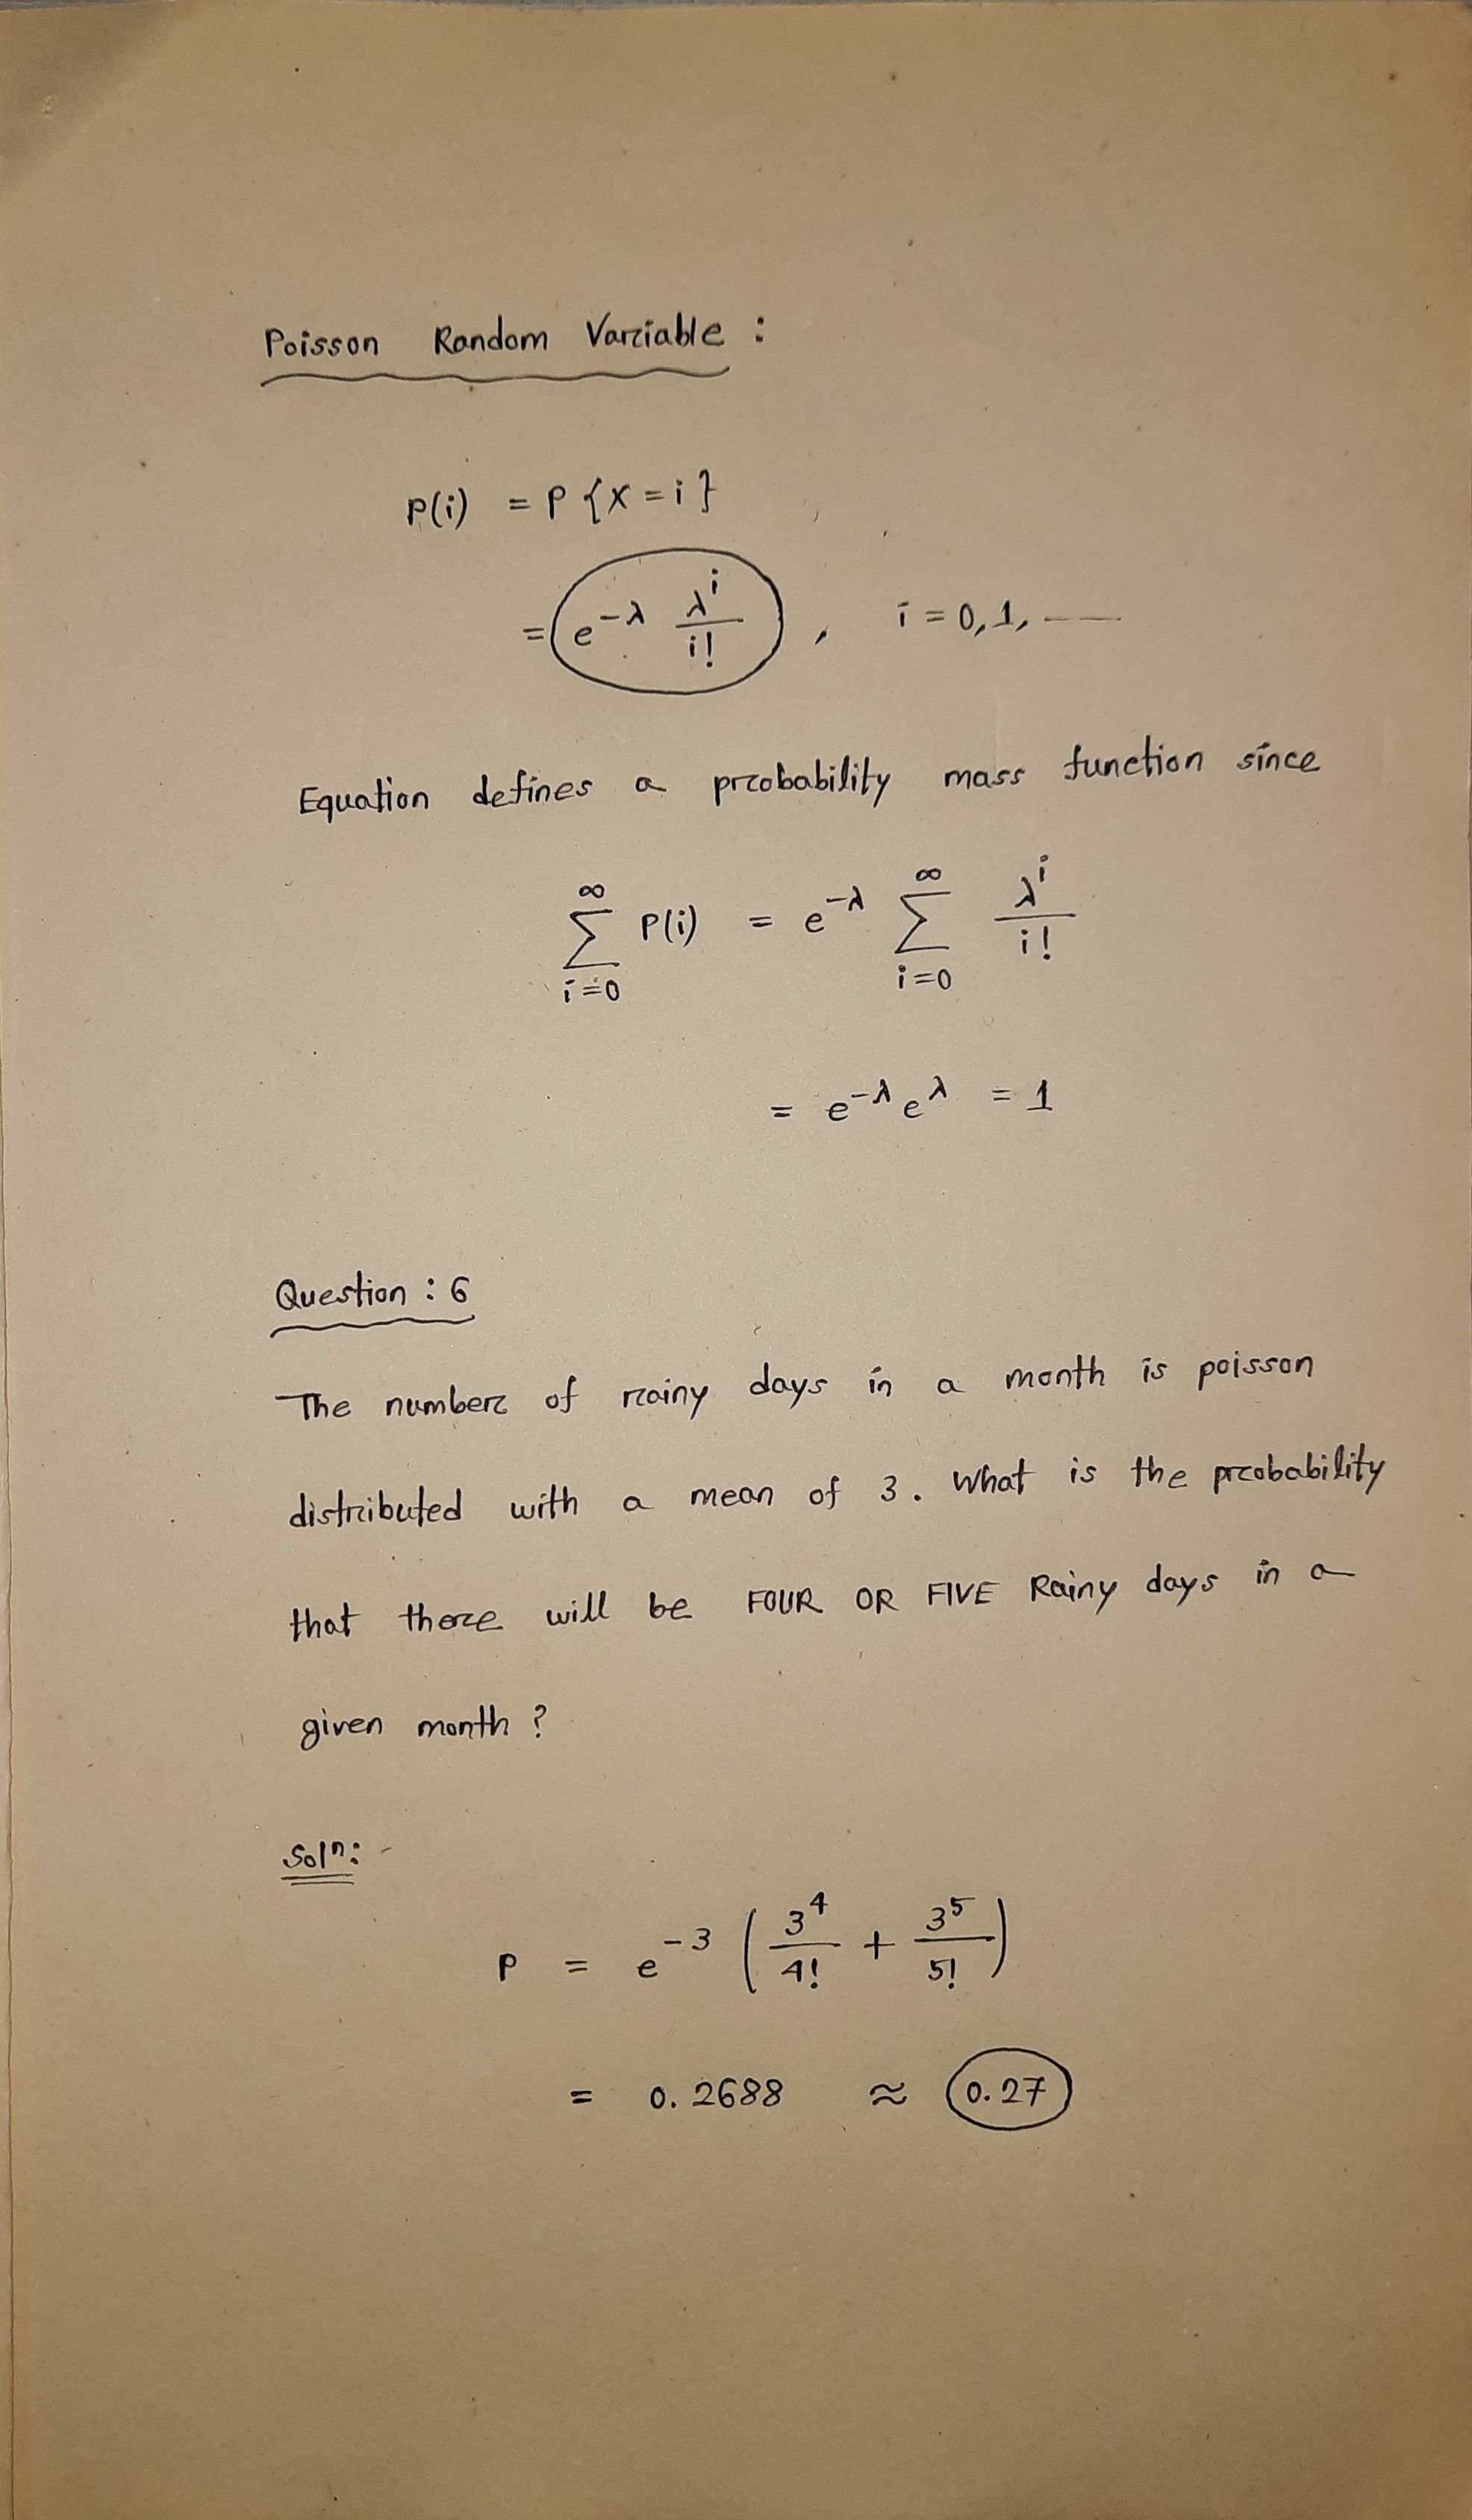 Poisson Random Variable :
P(i) = P {X = i}
= e^{-λ} λ^i / i! , i = 0, 1, ---
Equation defines a probability mass function since
∑_{i=0}^{∞} P(i) = e^{-λ} ∑_{i=0}^{∞} λ^i / i!
= e^{-λ} e^{λ} = 1
Question : 6
The number of rainy days in a month is poisson
distributed with a mean of 3. What is the probability
that there will be FOUR OR FIVE Rainy days in a
given month ?
Solⁿ:
P = e^{-3} ( 3^4 / 4! + 3^5 / 5! )
= 0.2688 ≈ 0.27